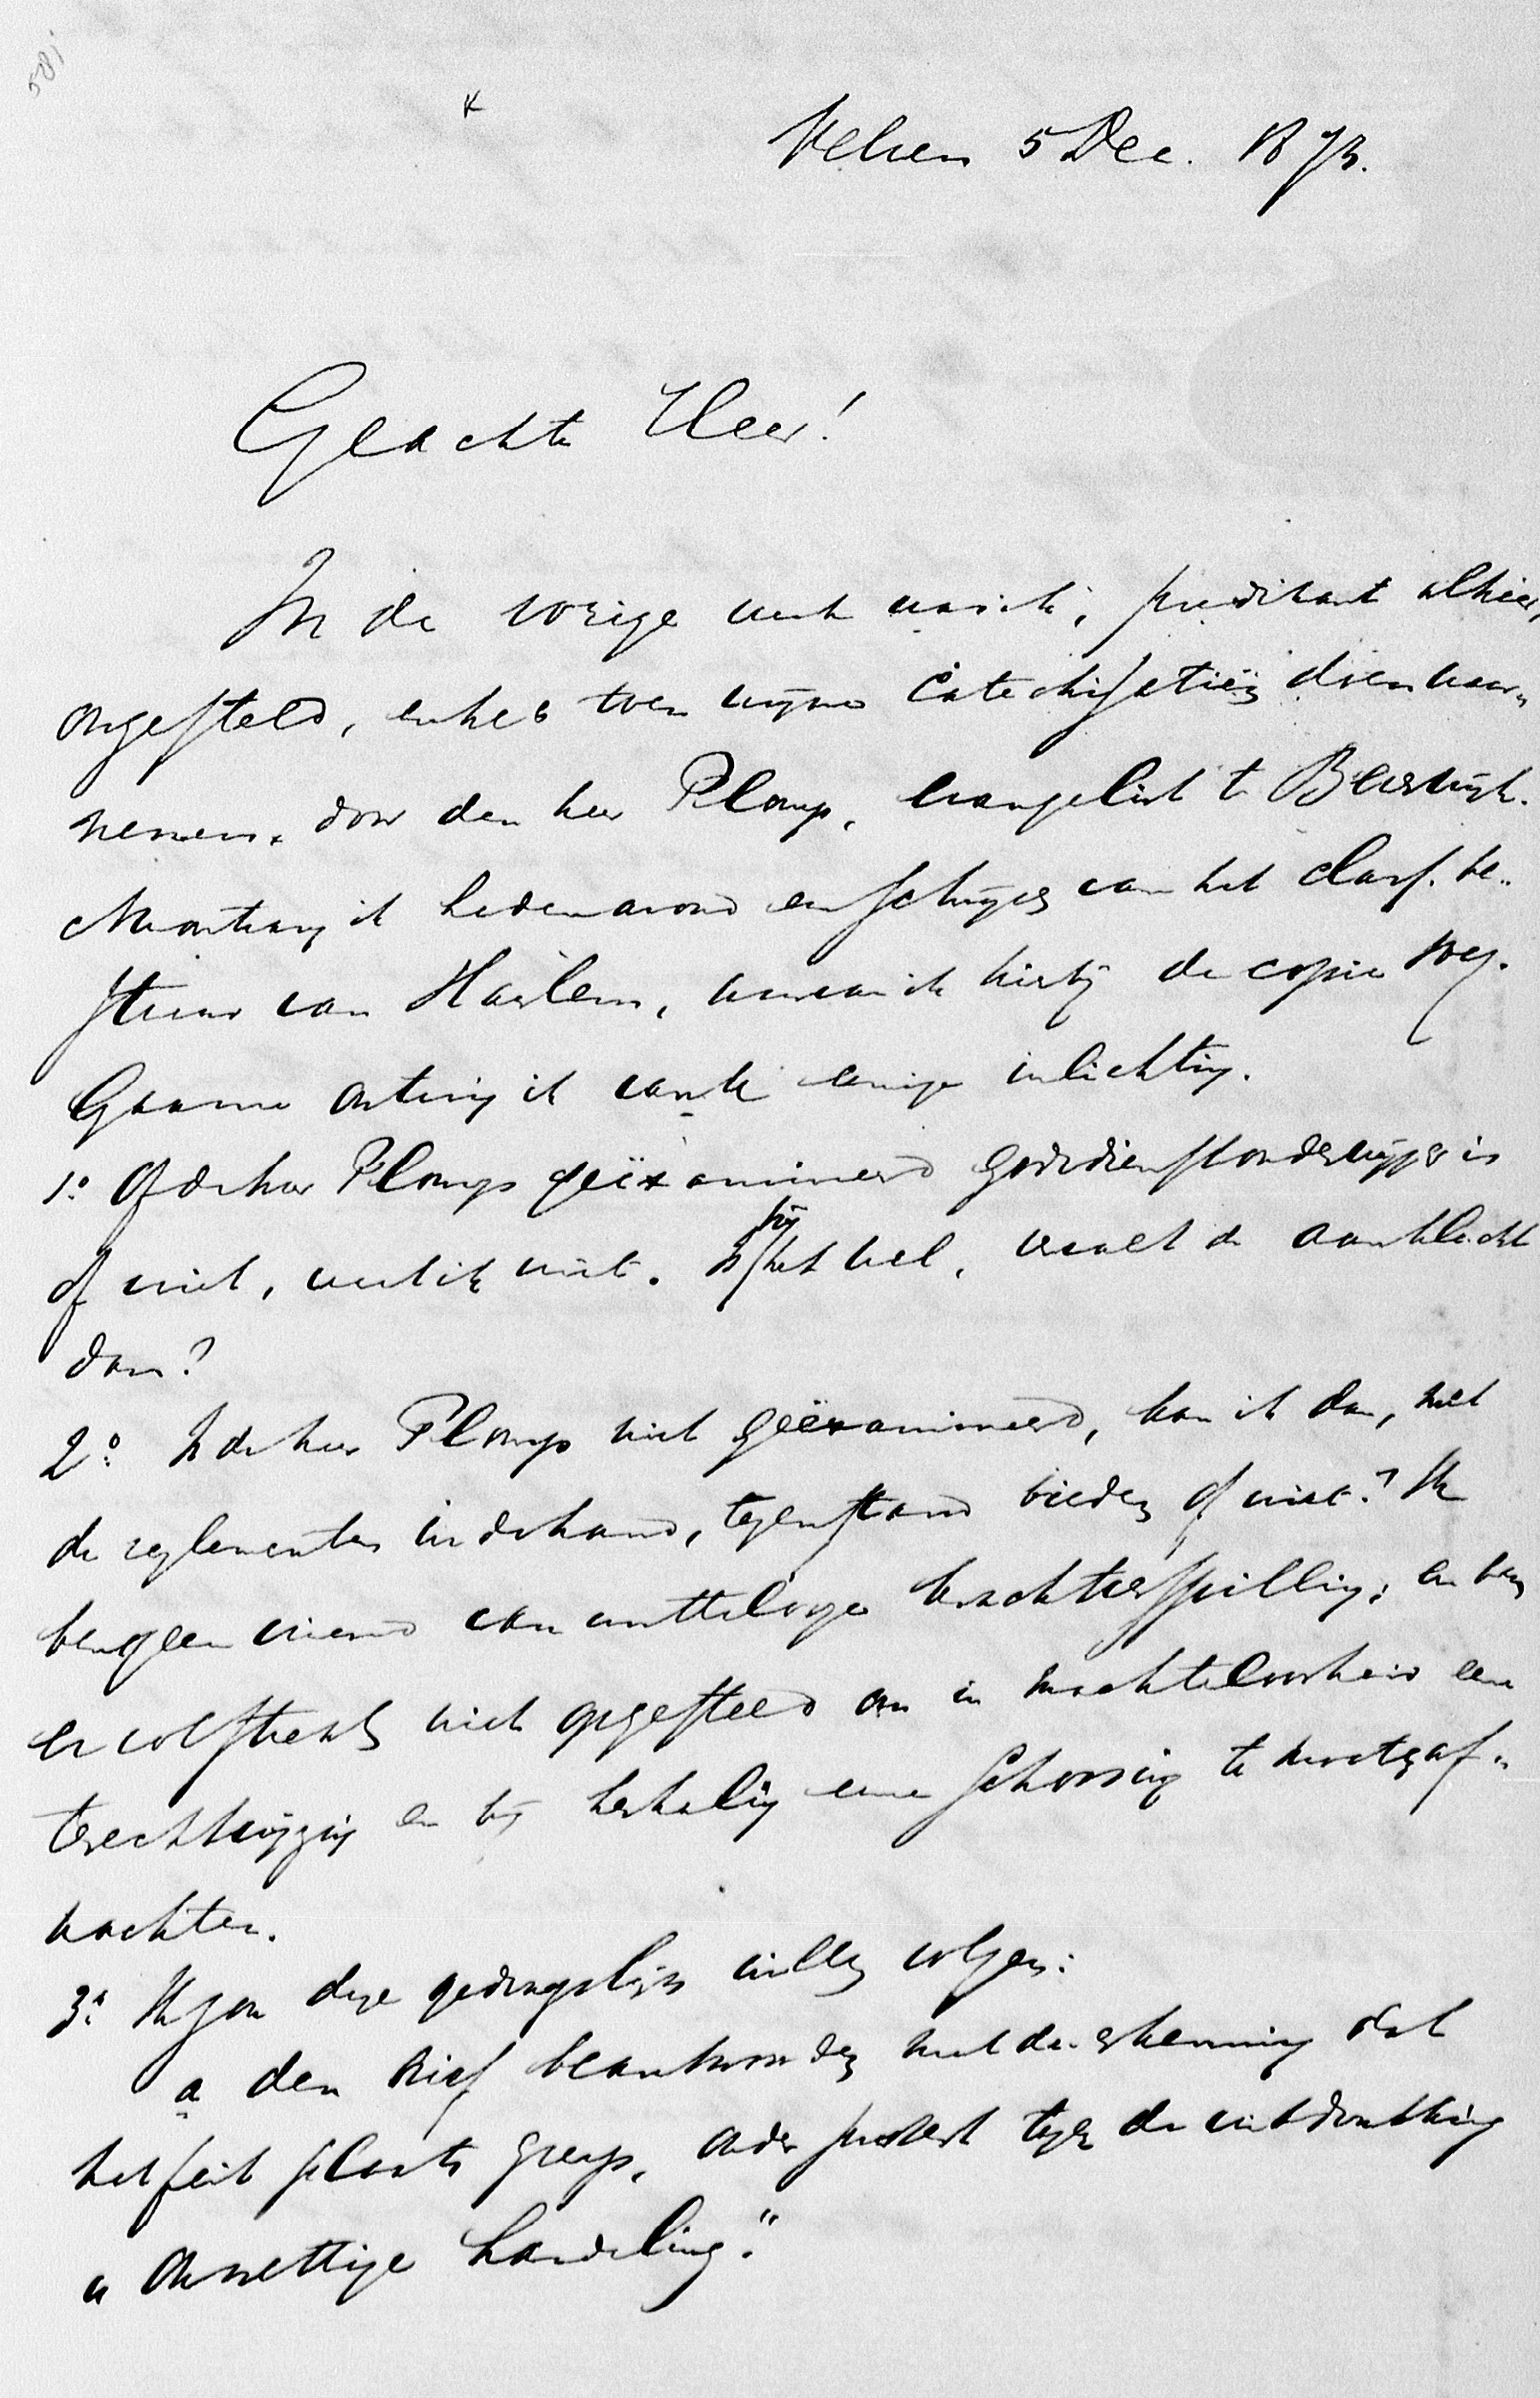 Velsen 5 Dec. 1873.
Geachte Heer!
In de vorige week was ik, predikant alhier,
ongesteld, en heb toen mijne catechisatiën doen waar-
nemen door den heer Plomp, evangelist te Beverwijk.
Nu ontvang ik hedenavond een schrijven van het class. be-
stuur van Haarlem, waarvan ik hierbij de copie voeg.
Gaarne ontving ik van U eenige inlichting.
1o Of de heer Plomp geëxamineerd godsdienstonderwijzer is
of niet, weet ik niet. Is hij het wel, vervalt de aanklacht
dan?
2o Is de heer Plomp niet geëxamineerd, kan ik dan, met
de reglementen in de hand, tegenstand bieden of niet? Ik
ben geen vriend van nuttelooze krachtverspilling; en ben
er volstrekt niet op gesteld om in machteloosheid eene
terechtwijzing en bij herhaling eene schorsing te moeten af-
wachten.
3o Ik zou deze gedragslijn willen volgen:
a den brief beantwoorden met de erkenning dat
het feit plaats greep, onder protest tegen de uitdrukking
„onwettige handeling."